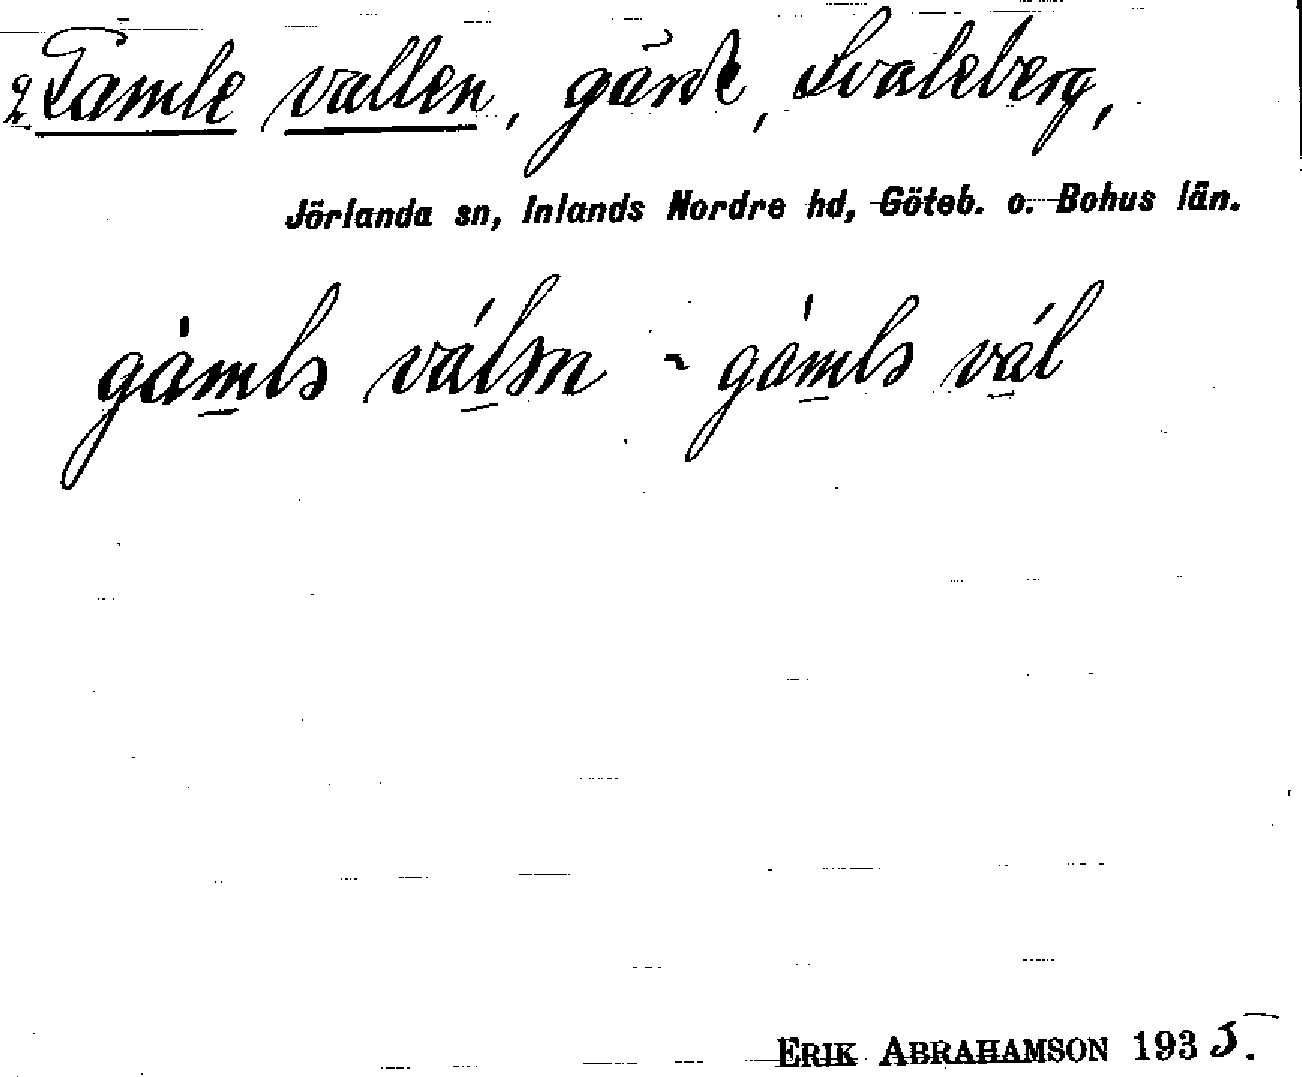 2 Gamle vallen, gärde, Svaleberg,
Jörlanda sn, Inlands Nordre hd, Göteb. o. Bohus län.
gámlə válən ~ gámlə vál
ERIK ABRAHAMSON 1935.